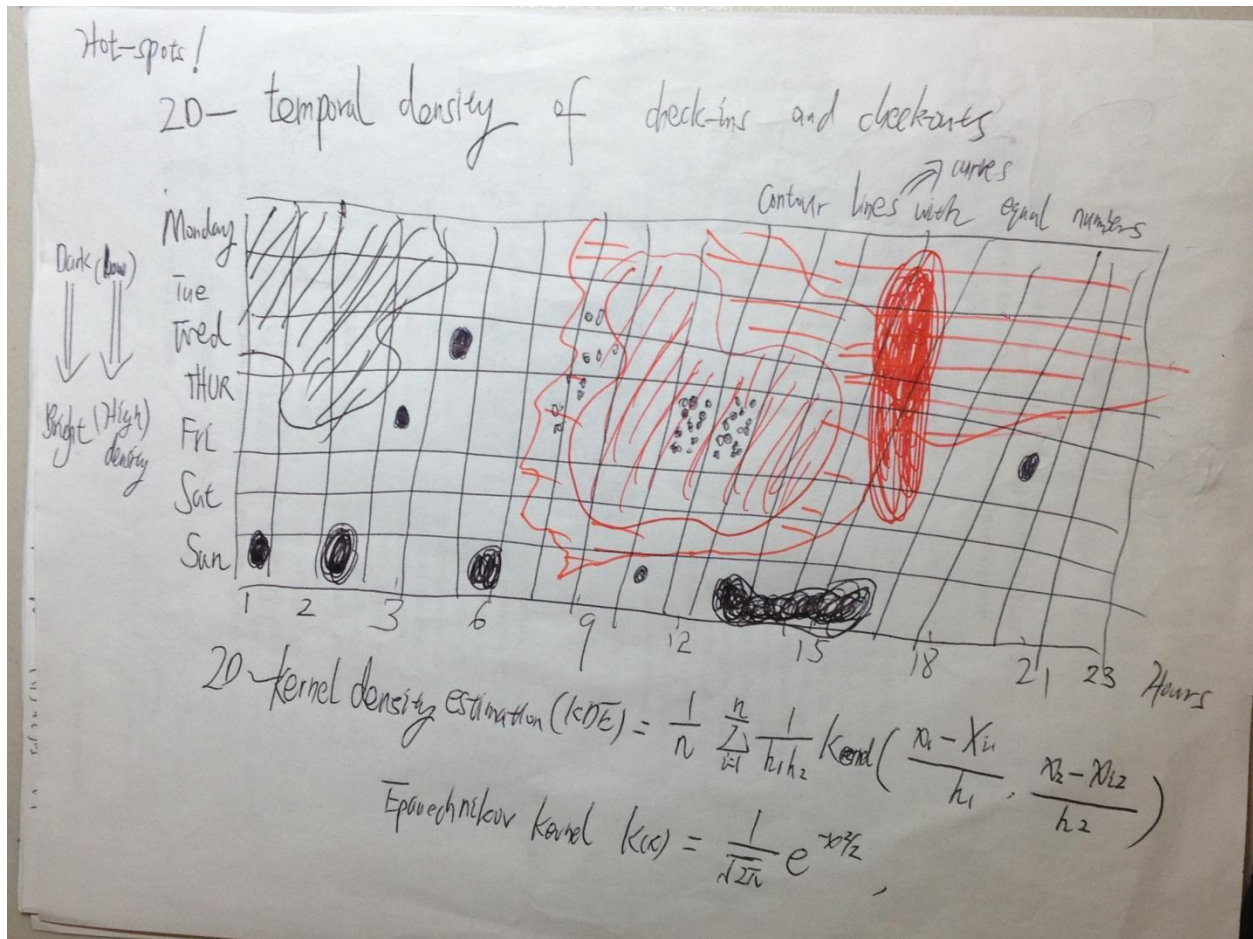 Hot-spots!
2D- temporal density of check-ins and check-outs
curves
Contour lines with equal numbers
Monday
Tue
Wed
THUR
Fri
Sat
Sun
Dark (Low)
Bright (High)
density
1 2 3 6 9 12 15 18 21 23 Hours
2D-Kernel density estimation (KDE) = 1/n Σ_{i=1}^{n} 1/(h₁h₂) Kernel( (x₁ - X_{i1})/h₁, (x₂ - x_{i2})/h₂ )
Epanechnikov kernel K(x) = 1/√2π e^{-x²/2},